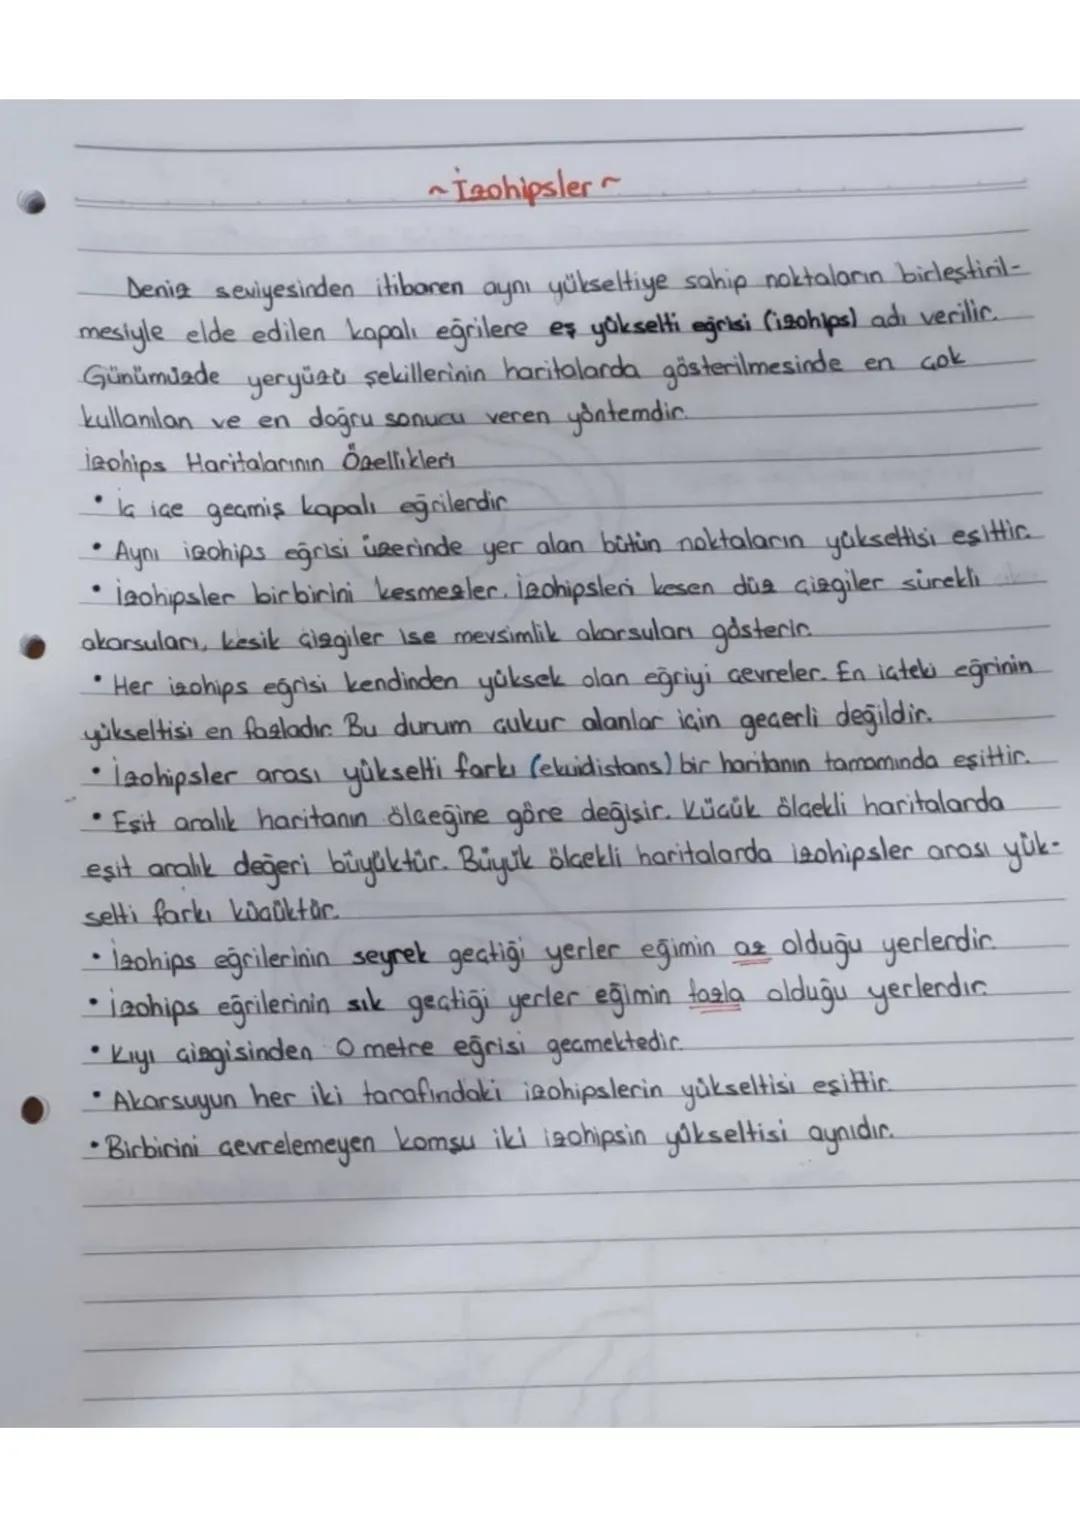 ~İzohipsler~
Deniz seviyesinden itibaren aynı yükseltiye sahip noktaların birleştiril-
mesiyle elde edilen kapalı eğrilere eş yükselti eğrisi (izohips) adı verilir.
Günümüzde yeryüzü şekillerinin haritalarda gösterilmesinde en çok
kullanılan ve en doğru sonucu veren yöntemdir.
İzohips Haritalarının Özellikleri
• İç içe geçmiş kapalı eğrilerdir
• Aynı izohips eğrisi üzerinde yer alan bütün noktaların yükseltisi eşittir.
• İzohipsler birbirini kesmezler. İzohipsleri kesen düz çizgiler sürekli
akarsuları, kesik çizgiler ise mevsimlik akarsuları gösterir.
• Her izohips eğrisi kendinden yüksek olan eğriyi çevreler. En içteki eğrinin
yükseltisi en fazladır. Bu durum çukur alanlar için geçerli değildir.
• İzohipsler arası yükselti farkı (ekuidistans) bir haritanın tamamında eşittir.
• Eşit aralık haritanın ölçeğine göre değişir. Küçük ölçekli haritalarda
eşit aralık değeri büyüktür. Büyük ölçekli haritalarda izohipsler arası yük-
selti farkı küçüktür.
• İzohips eğrilerinin seyrek geçtiği yerler eğimin az olduğu yerlerdir.
• İzohips eğrilerinin sık geçtiği yerler eğimin fazla olduğu yerlerdir.
• Kıyı çizgisinden 0 metre eğrisi geçmektedir.
• Akarsuyun her iki tarafındaki izohipslerin yükseltisi eşittir.
• Birbirini çevrelemeyen komşu iki izohipsin yükseltisi aynıdır.